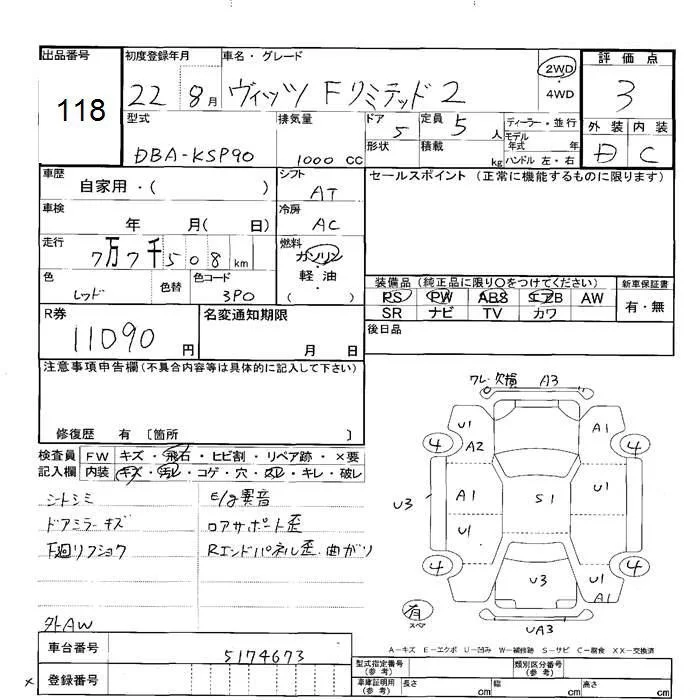 出品番号 118
初度登録年月 22 8月
車名・グレード ヴィッツ Fリミテッド2
2WD・4WD
評価点 3
外装 内装 C
型式 DBA-KSP90
排気量 1000 CC
ドア 5
形状
定員 5 人
積載 kg
ディーラー・並行
モデル年式 年
ハンドル 左・右
車歴 自家用・( )
シフト AT
セールスポイント(正常に機能するものに限ります)
車検 年 月( 日)
冷房 AC
走行 7万7千508 km
燃料 ガソリン・軽油 ( )
色 レッド 色替 色コード 3P0
装備品(純正品に限り○をつけてください)
PS PW ABS エアB AW
SR ナビ TV カワ
新車保証書 有・無
R券 11090 円
名変通知期限 月 日
後日品
注意事項申告欄(不具合内容等は具体的に記入して下さい)
修復歴 有 〔箇所 〕
検査員記入欄
FW キズ・飛石・ヒビ割・リペア跡・×要
内装 キズ・汚レ・コゲ・穴・スレ・キレ・破レ
シートシミ
ドアミラーキズ
F廻リフショク
外AW
E/g異音
ロアサポート歪
Rエンドパネル歪・曲がリ
ワレ欠損 A3
4 U1 A2 A1 4
U3 A1 S1 U1
U1
4 U3 U1 A1 4
有 スペア
UA3
A-キズ E-エクボ U-凹み W-補修跡 S-サビ C-腐食 XX-交換済
車台番号 5174673
登録番号
×
型式指定番号(参考) 類別区分番号(参考)
車庫証明用(参考) 長さ cm 幅 cm 高さ cm